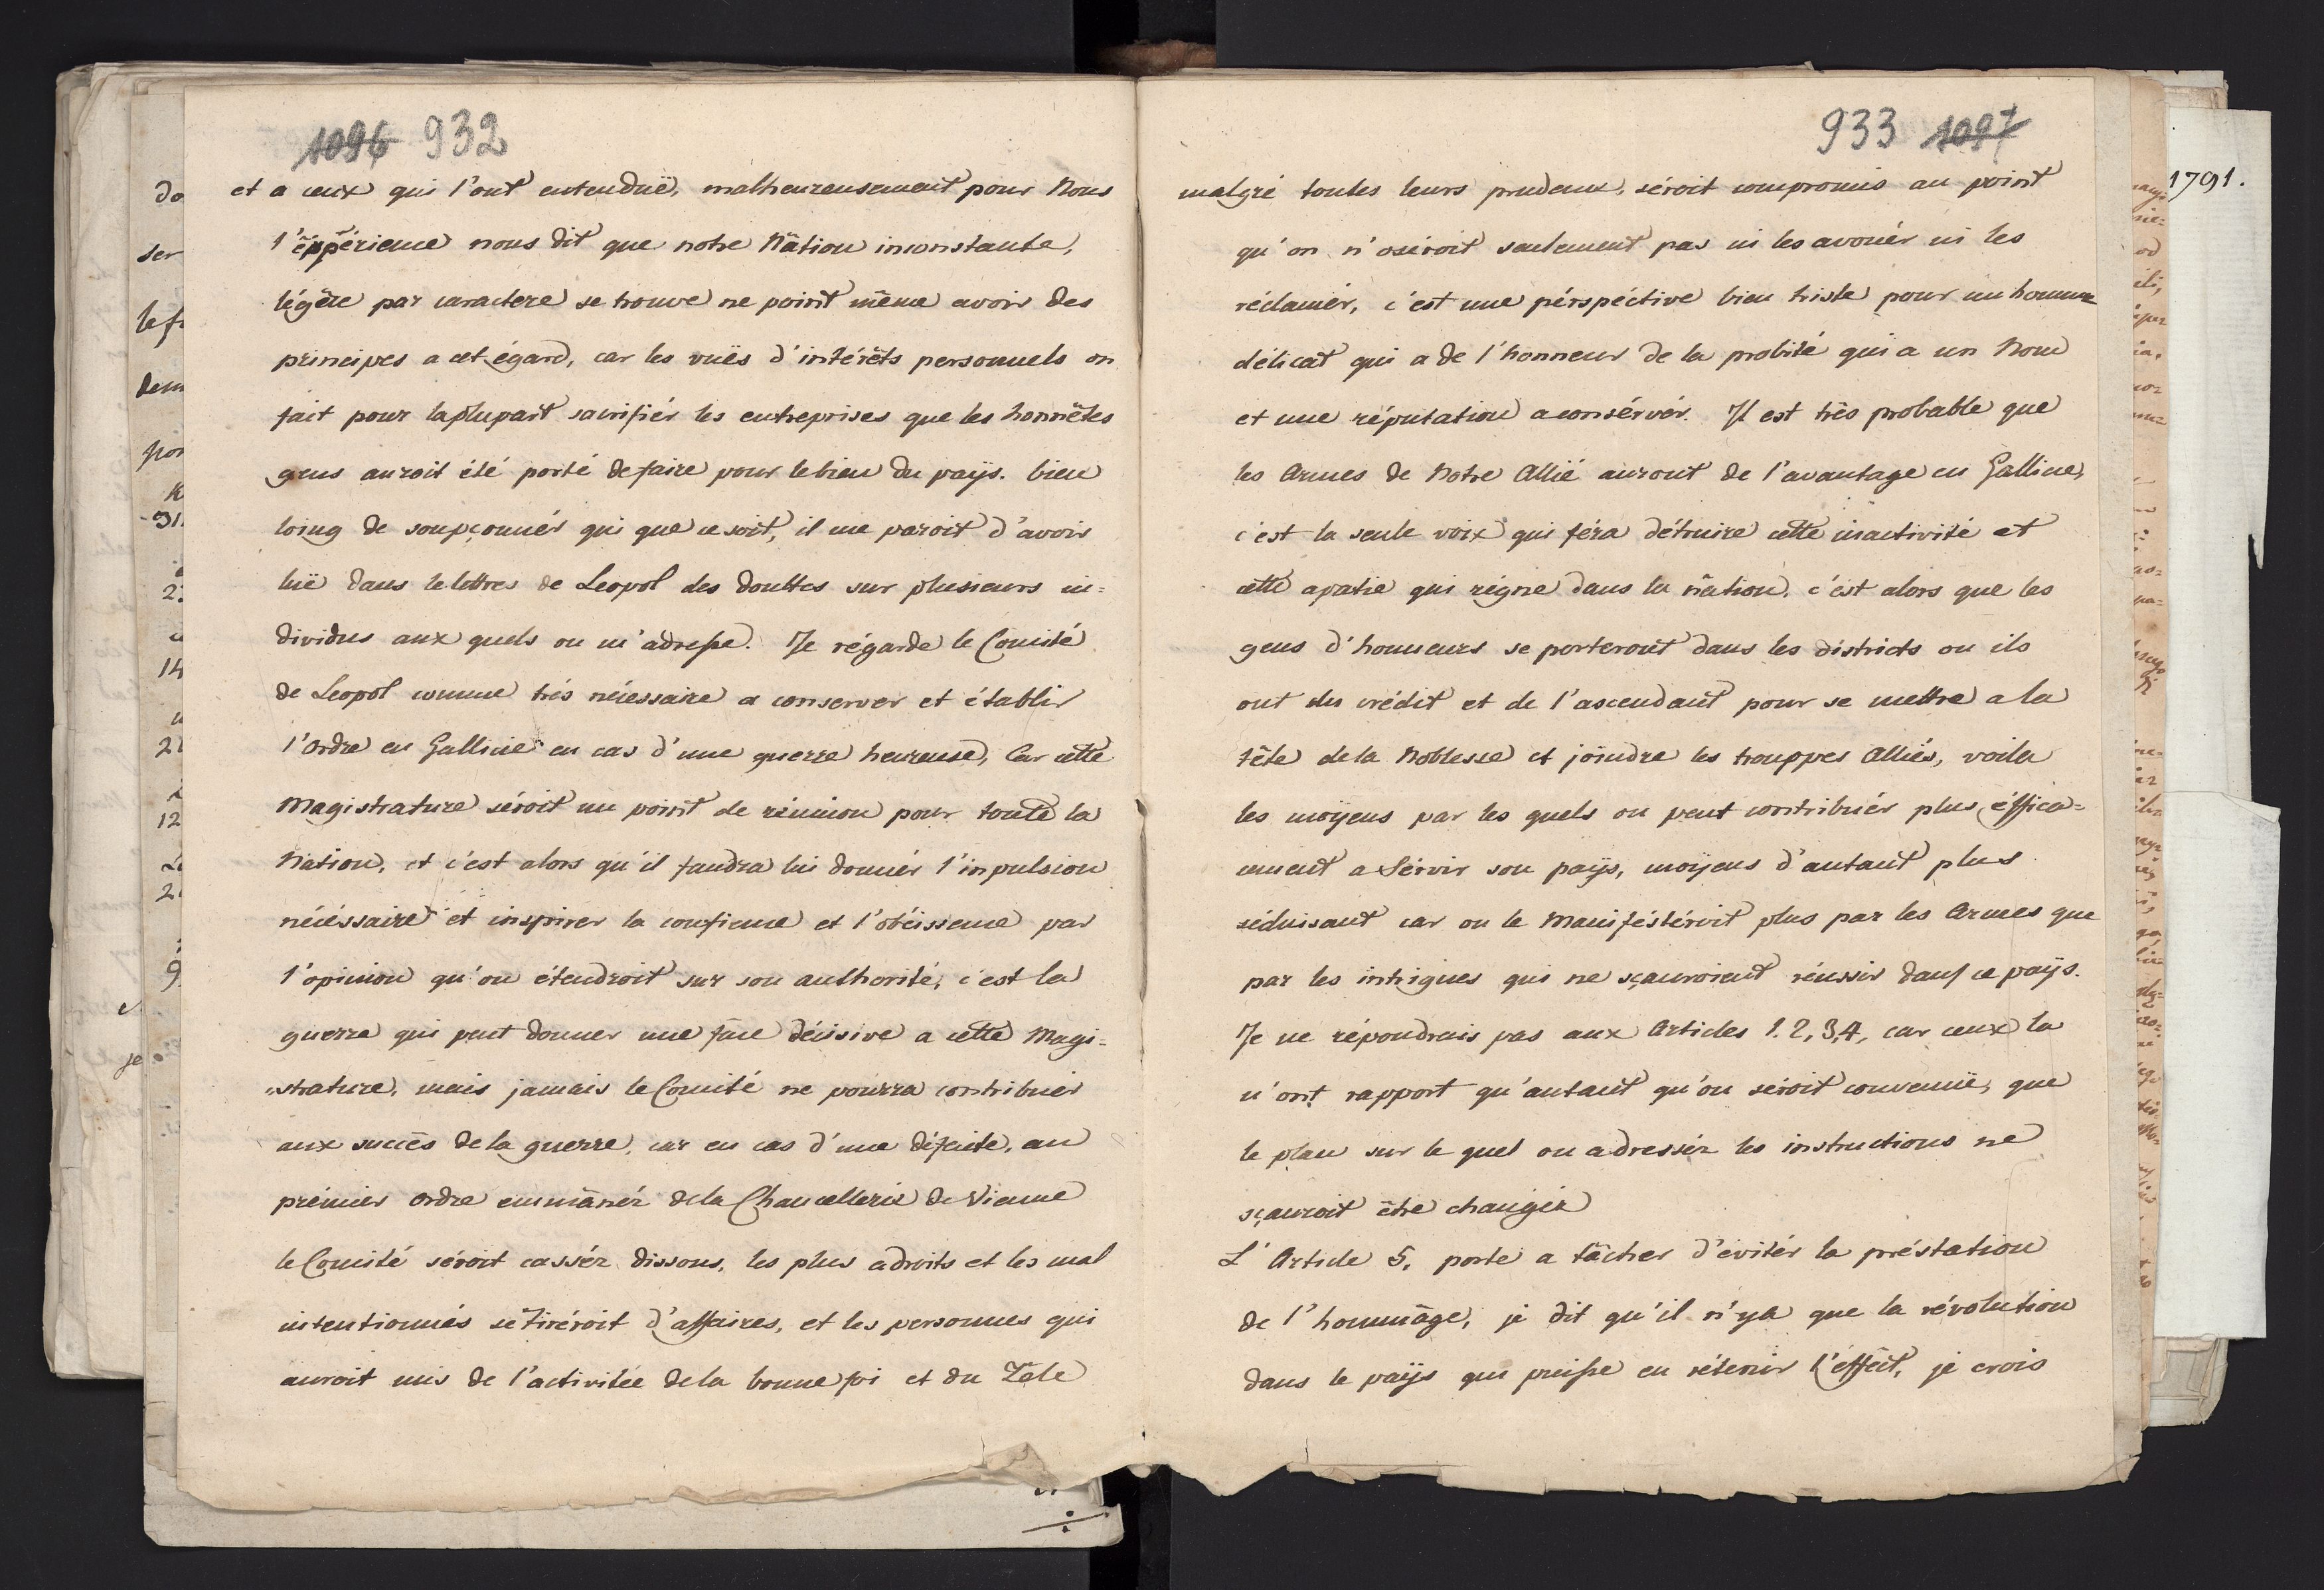 1096 932
et a ceux qui l'ont entenduë, malheureusement pour Nous
l'éxpérience nous dit que notre Nâtion inconstante,
légére par caractere se trouve ne point même avoir des
principes a cet égard, car les vuës d'intérêts personnels on
fait pour laplupart sacrifiér les entreprises que les honnêtes
gens auroit été porté de faire pour lebien du paÿs. bien
loing de soupçonnér qui que ce soit, il me paroit d'avoir
luë dans le lettres de Leopol des douttes sur plusieurs in=
dividus aux quels on m'adresse. Je régarde le Comité
de Leopol comme trés nécessaire a conserver et établir
l'Ordre en Gallicie en cas d'une guerre heureuse, Car cette
Magistrature séroit un point de réunion pour toute la
Nation, et c'est alors qu'il faudra lui donnér l'inpulsion
nécéssaire et inspirer la confience et l'obéissence par
l'opinion qu'on étendroit sur son authorité, c'est la
guerre qui peut donner une face décisive a cette Magi=
strature, mais jamais le Comité ne pourra contribuér
aux succès de la guerre, car en cas d'une défaite, au
prémier Ordre emmânéz de la Chancellerie de Vienne
le Comité séroit casséz dissous, les plus adroits et les mal
intentionnés sé tiréroit d'affaires, et les personnes qui
auroit mis de l'activitée dela bonne foi et du Zéle
933 1097
malgré toutes leurs prudence, séroit compromis au point
qu'on n'oséroit seulement pas ni les avouér ni les
réclamér, c'est une pérspéctive bien triste pour un homme
délicat qui a de l'honneur de la probité qui a un Nom
et une réputation a consérvér. Il est très probable que
les Armes de Notre Allié auront de l'avantage en Gallicie,
c'est la seule voix qui féra détruire cette inactivité et
cette apatie qui régne dans la nâtion, c'est alors que les
gens d'honneurs se porteront dans les districts ou ils
ont du crédit et de l'ascendant pour se mettre a la
tête dela Noblesse et joindre les trouppes Alliés, voila
les moÿens par les quels on peut contribuér plus éffica=
cement a Sérvir son paÿs, moÿens d'autant plus
séduisant car on le Maniféstéroit plus par les Armes que
par les intrigues qui ne sçauroient réussir dans ce paÿs.
Je ne répondrais pas aux Articles 1. 2, 3, 4, car ceux la
n'ont rapport qu'autant qu'on séroit convenuë, que
le plan sur le quel on adresséz les instructions ne
sçauroit être changéz
L'Article 5, porte a tâcher d'évitér la préstation
de l'hommâge, je dit qu'il n'ya que la révolution
dans le paÿs qui puisse en réténir l'éffèt, je crois
1791.